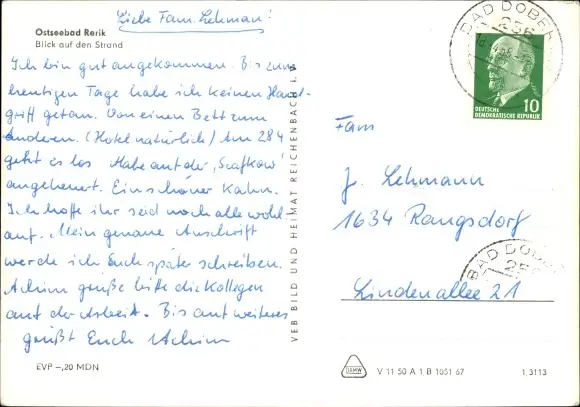 Liebe Fam. Lehman!
Ostseebad Rerik
Blick auf den Strand
Ich bin gut angekommen. Bis zum
heutigen Tage habe ich keinen Hand-
griff getan. Von einen Bett zum
anderen. (Hotel natürlich) Am 28 4
geht es los Habe auf der "Seafkow"
angeheuert. Ein schöner Kahn.
Ich hoffe ihr seid noch alle wohl
auf. Mein genaue Anschrift
werde ich Euch später schreiben.
Achim grüße bitte die Kollegen
auf der Arbeit. Bis auf weiteres
grüßt Euch Achim
EVP –,20 MDN
VEB BILD UND HEIMAT REICHENBACH i. V.
BAD DOBER
256
10
DEUTSCHE
DEMOKRATISCHE REPUBLIK
Fam
J. Lehmann
1634 Rangsdorf
BAD DOBER
256
Lindenallee 21
V 11 50 A 1 B 1051 67
1,3113